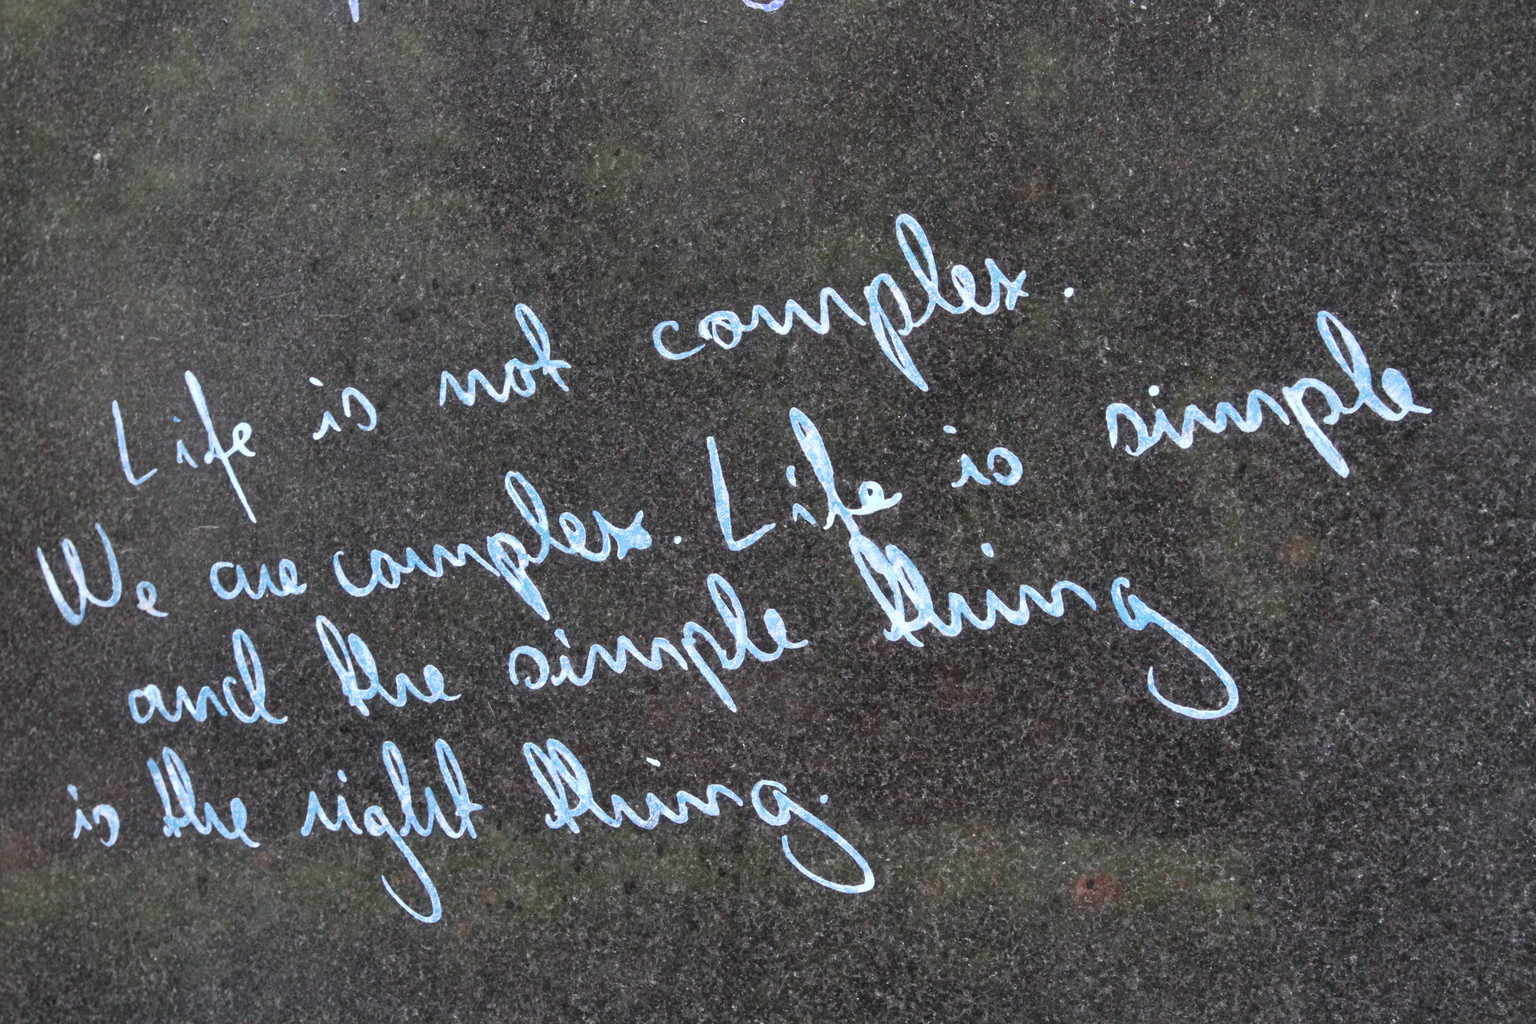 Life is not complex.
We are complex. Life is simple
and the simple thing
is the right thing.